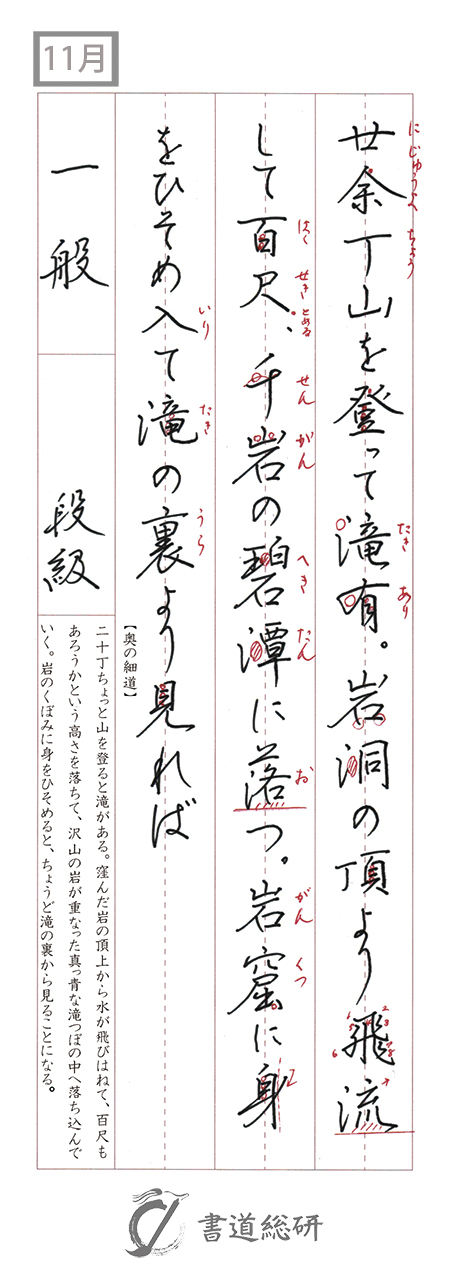 11月
廿余丁山を登って滝有。岩洞の頂より飛流
にじゅうよ ちょう たき あり
して百尺、千岩の碧潭に落つ。岩窟に身
はく せき とある せん がん へき たん お がん くつ
をひそめ入て滝の裏より見れば
いり たき うら
【奥の細道】
二十丁ちょっと山を登ると滝がある。窪んだ岩の頂上から水が飛びはねて、百尺も
あろうかという高さを落ちて、沢山の岩が重なった真っ青な滝つぼの中へ落ち込んで
いく。岩のくぼみに身をひそめると、ちょうど滝の裏から見ることになる。
一般
段級
書道総研